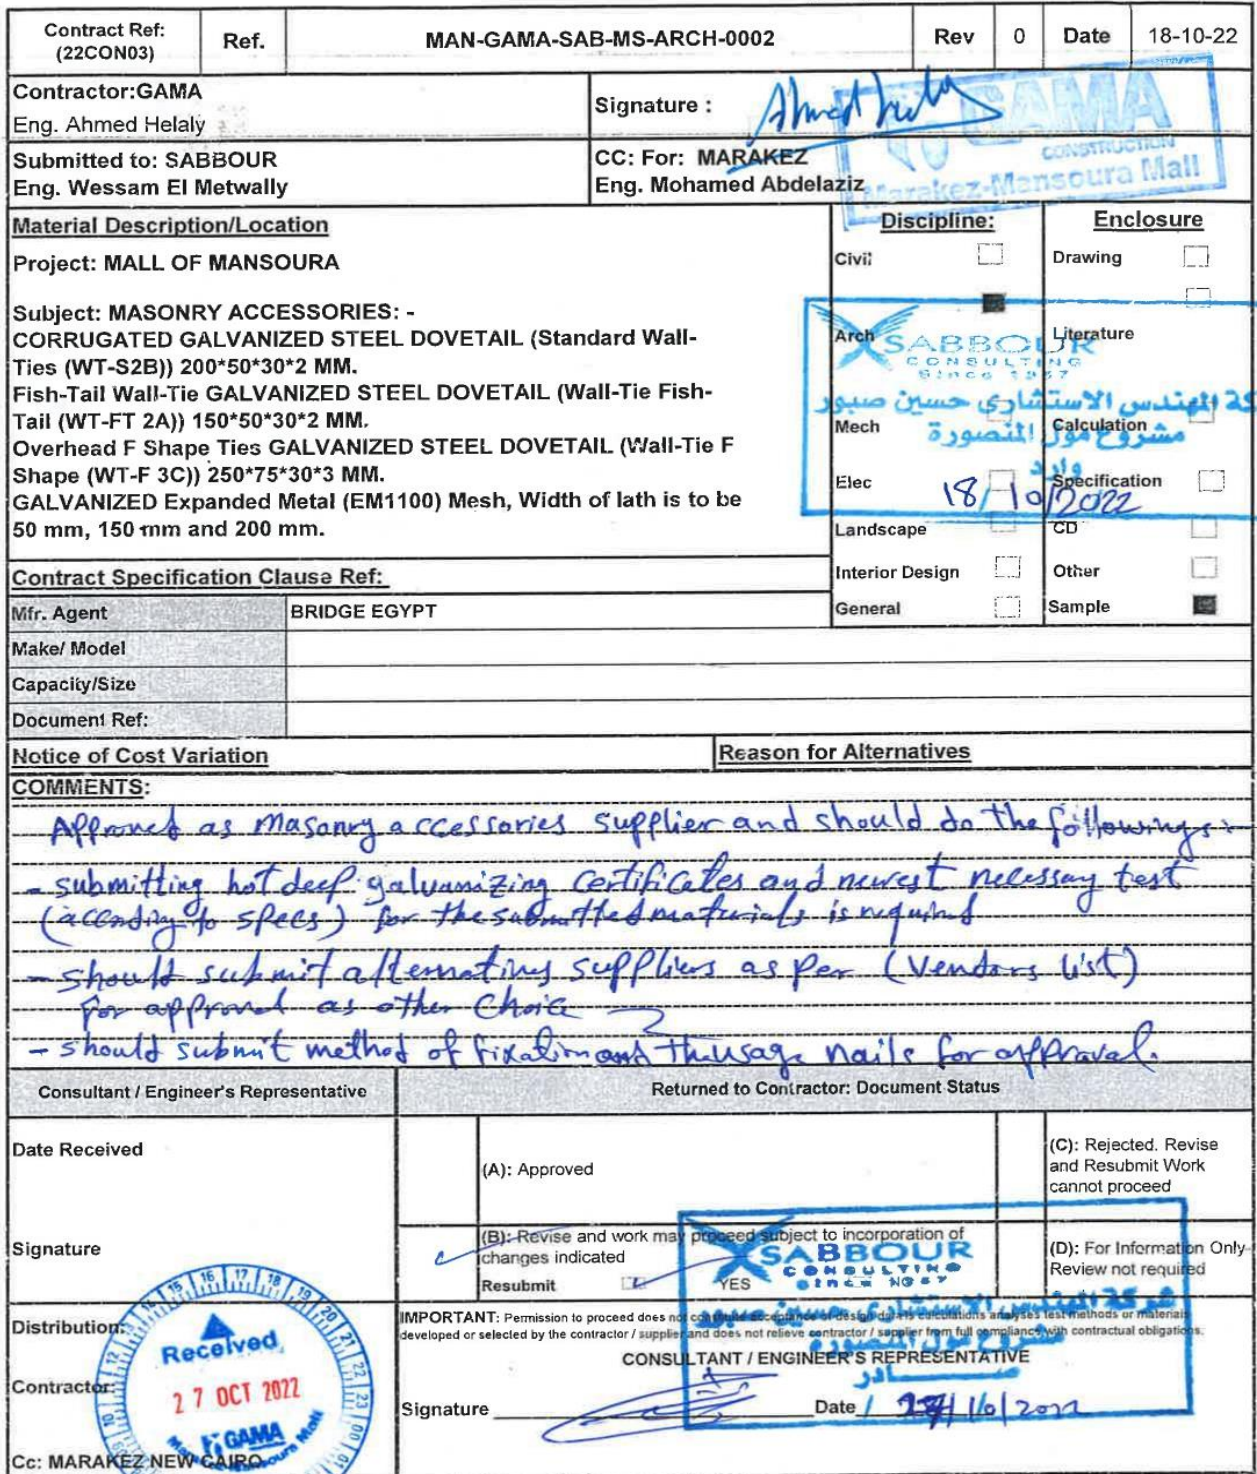 Contract Ref: (22CON03) Ref. MAN-GAMA-SAB-MS-ARCH-0002 Rev 0 Date 18-10-22
Contractor:GAMA
Eng. Ahmed Helaly
Signature : Ahmed Helaly
GAMA
CONSTRUCTION
Marakez-Mansoura Mall
Submitted to: SABBOUR
Eng. Wessam El Metwally
CC: For: MARAKEZ
Eng. Mohamed Abdelaziz
Material Description/Location
Project: MALL OF MANSOURA
Subject: MASONRY ACCESSORIES: -
CORRUGATED GALVANIZED STEEL DOVETAIL (Standard Wall-
Ties (WT-S2B)) 200*50*30*2 MM.
Fish-Tail Wall-Tie GALVANIZED STEEL DOVETAIL (Wall-Tie Fish-
Tail (WT-FT 2A)) 150*50*30*2 MM.
Overhead F Shape Ties GALVANIZED STEEL DOVETAIL (Wall-Tie F
Shape (WT-F 3C)) 250*75*30*3 MM.
GALVANIZED Expanded Metal (EM1100) Mesh, Width of lath is to be
50 mm, 150 mm and 200 mm.
Discipline:
Civil
Arch
Mech
Elec
Landscape
Interior Design
General
Enclosure
Drawing
Literature
Calculation
Specification
CD
Other
Sample
SABBOUR
CONSULTING
Since 1957
المهندس الاستشارى حسين صبور
مشروع مول المنصورة
وارد
18/10/2022
Contract Specification Clause Ref:
Mfr. Agent BRIDGE EGYPT
Make/ Model
Capacity/Size
Document Ref:
Notice of Cost Variation
Reason for Alternatives
COMMENTS:
Approved as masonry accessories supplier and should do the followings:-
- submitting hot deep galvanizing certificates and newest necessary test
(according to specs) for the submitted materials is required
- should submit alternating suppliers as per (Vendors list)
for approval as other choice
- should submit method of fixation and nails for approval.
Consultant / Engineer's Representative
Returned to Contractor: Document Status
Date Received
Signature
(A): Approved
(B): Revise and work may proceed subject to incorporation of
changes indicated
Resubmit YES
(C): Rejected. Revise
and Resubmit Work
cannot proceed
(D): For Information Only-
Review not required
SABBOUR
CONSULTING
شركة المهندس الاستشارى حسين صبور
مشروع مول المنصورة
صادر
Distribution:
Contractor:
Cc: MARAKEZ NEW CAIRO
Received
27 OCT 2022
GAMA
IMPORTANT: Permission to proceed does not constitute acceptance of design details calculations analyses test methods or materials
developed or selected by the contractor / supplier and does not relieve contractor / supplier from full compliance with contractual obligations.
CONSULTANT / ENGINEER'S REPRESENTATIVE
Signature
Date / /10/2022